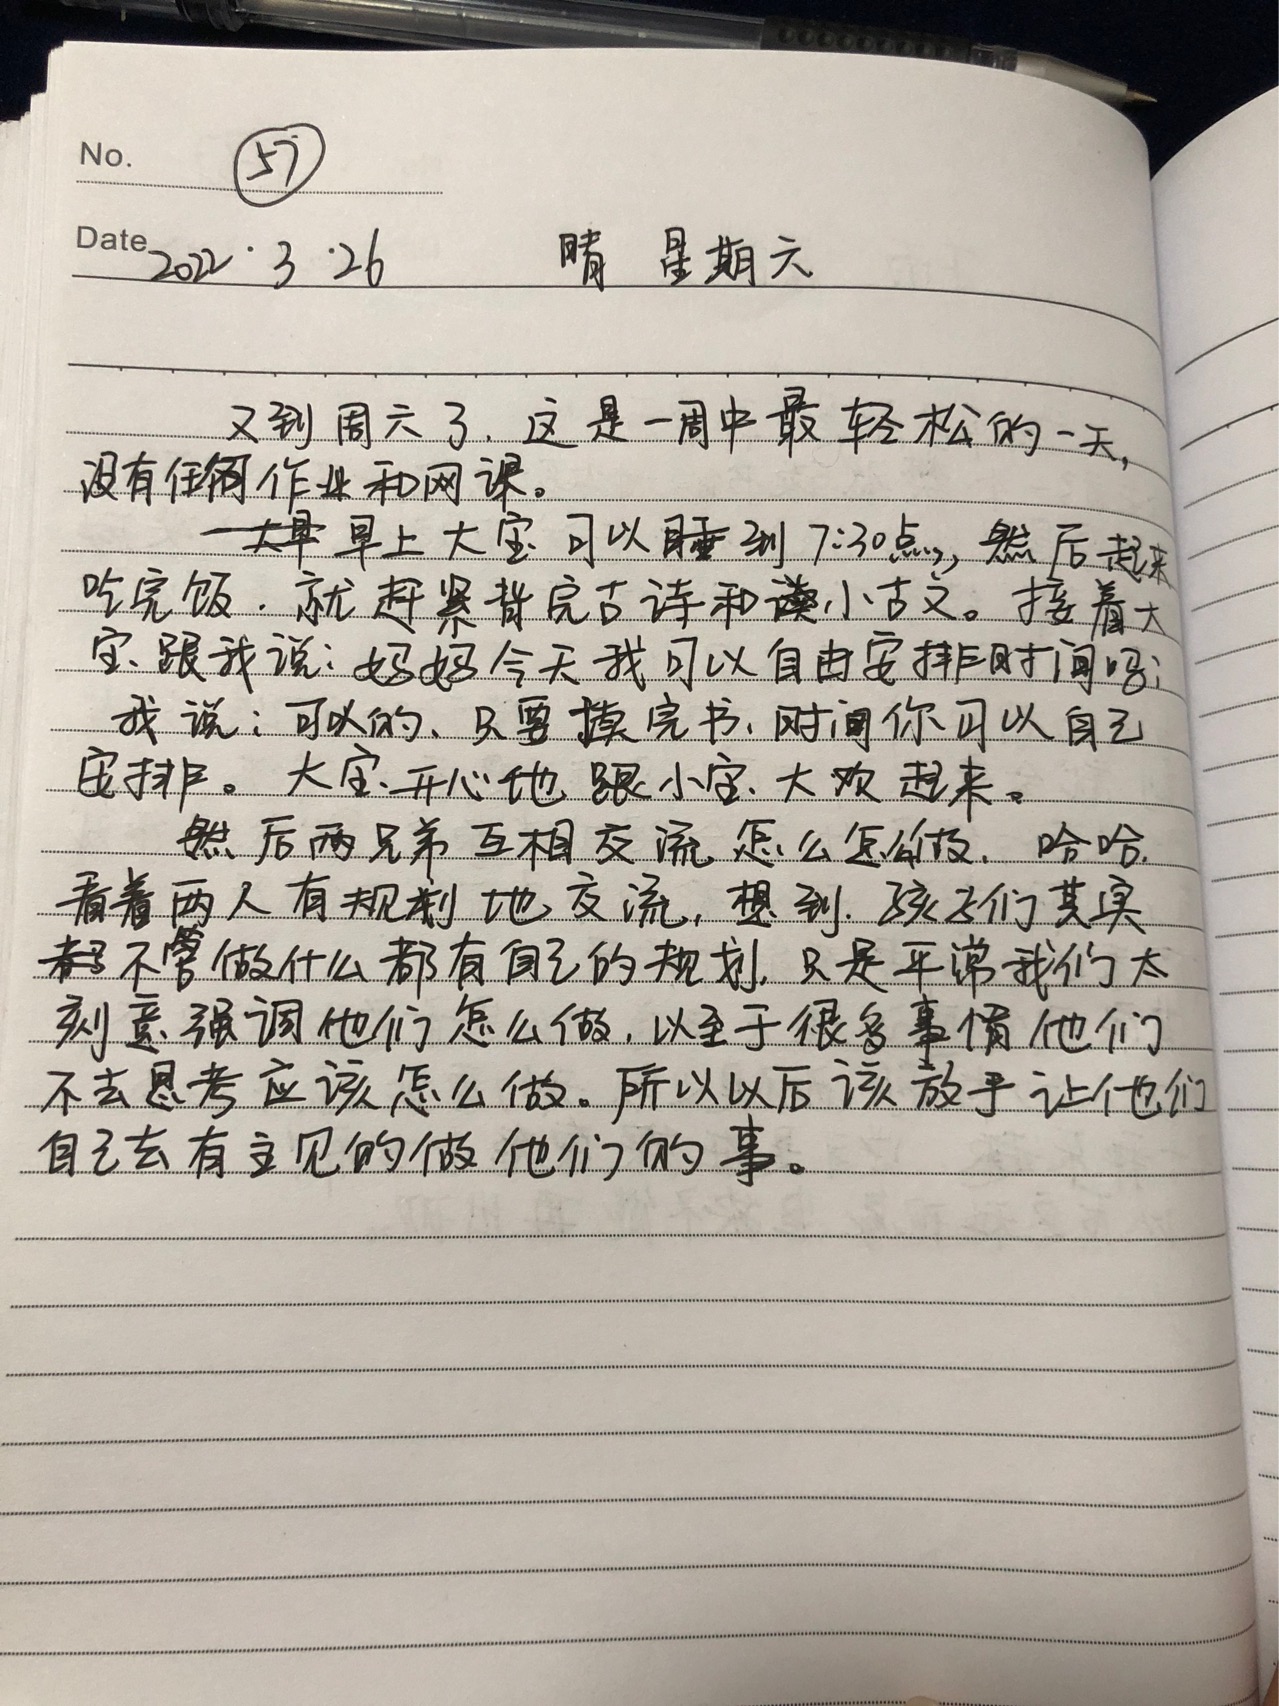 No. 57
Date 2022.3.26 晴 星期六
又到周六了，这是一周中最轻松的一天，
没有任何作业和网课。
早上大宝可以睡到7:30点，然后起来
吃完饭，就赶紧背完古诗和读小古文。接着大
宝跟我说：妈妈今天我可以自由安排时间吗；
我说：可以的、只要摸完书，时间你可以自己
安排。大宝开心地跟小宝大欢起来。
然后两兄弟互相交流怎么怎么做，哈哈，
看着两人有规划地交流，想到孩子们其实
不管做什么都有自己的规划，只是平常我们太
刻意强调他们怎么做，以至于很多事情他们
不去思考应该怎么做。所以以后该放手让他们
自己去有主见的做他们的事。